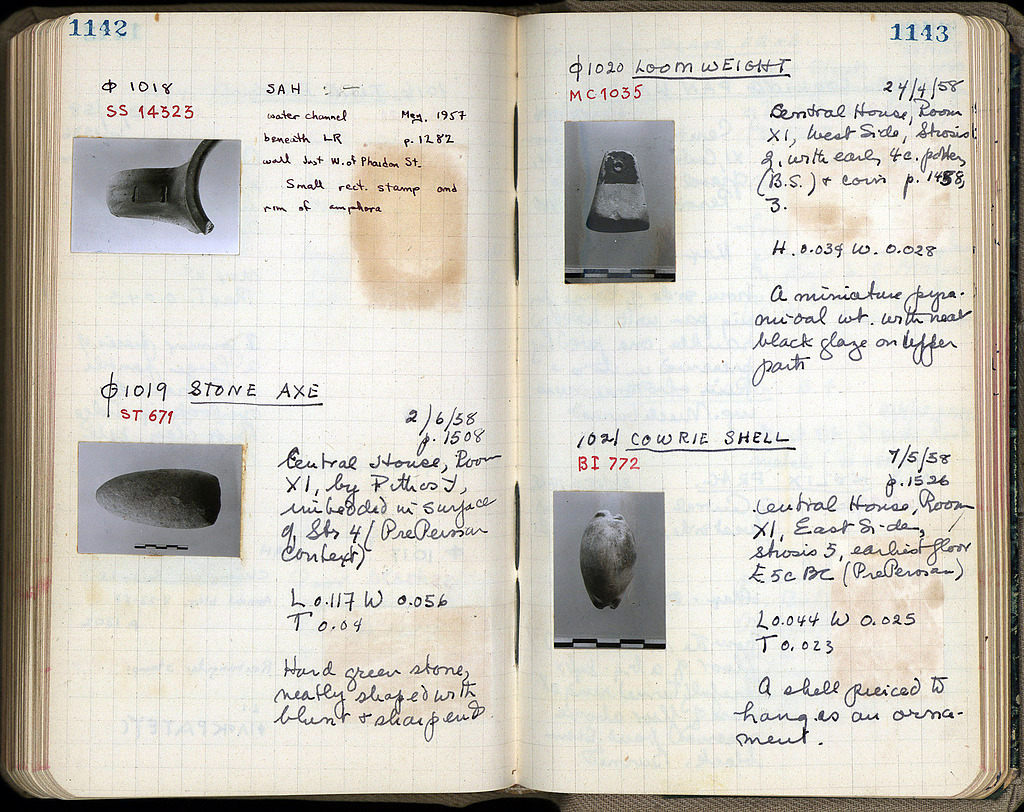 1142
Φ 1018
SS 14323
SAH : —
water channel May, 1957
beneath LR p. 1282
wall Just W. of Phaidon St.
Small rect. stamp and
rim of amphora
Φ1019 STONE AXE
ST 671
2/6/58
p. 1508
Central House, Room
XI, by Pithos I,
imbedded in surface
of Str 4 (PrePersian
context)
L 0.117 W 0.056
T 0.04
Hard green stone,
neatly shaped with
blunt + sharp end
1143
Φ1020 LOOM WEIGHT
MC 1035
24/4/58
Central House, Room
XI, West Side, Strosis
2, with early 4c. pottery
(B.S.) + coins p. 1458,
3.
H. 0.039 W. 0.028
A miniature pyra-
midal wt. with neat
black glaze on upper
parts
1021 COWRIE SHELL
BI 772
7/5/58
p. 1526
Central House, Room
XI, East Side,
Strosis 5, earliest floor
E 5c BC (PrePersian)
L 0.044 W 0.025
T 0.023
A shell pierced to
hang as an orna-
ment.